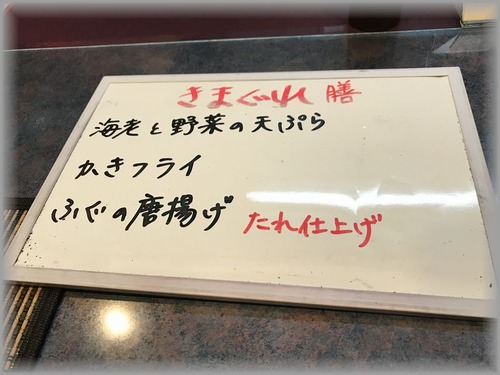 きまぐれ膳
海老と野菜の天ぷら
かきフライ
ふぐの唐揚げ たれ仕上げ